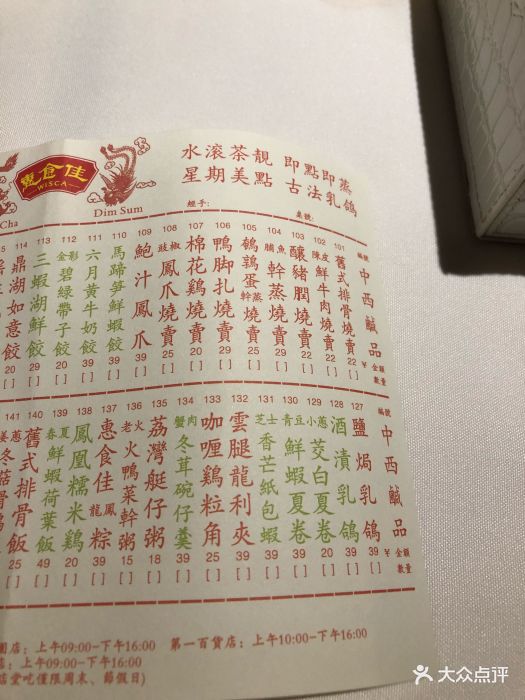 惠食佳
WISCA
Cha
Dim Sum
水滚茶靓 即點即蒸
星期美點 古法乳鴿
經手: 桌號:
編號 中西鹹品 ¥金額 數量
101 舊式排骨燒賣 22 [ ]
102 陳皮鮮牛肉燒賣 22 [ ]
103 釀豬潤燒賣 22 [ ]
104 脯魚幹蒸燒賣 29 [ ]
105 鵪鶉蛋幹蒸燒賣 29 [ ]
106 鴨脚扎燒賣 29 [ ]
107 棉花鷄燒賣 20 [ ]
108 豉椒鳳爪燒賣 25 [ ]
109 鮑汁鳳爪 39 [ ]
110 馬蹄笋鮮蝦餃 39 [ ]
111 六月黃牛奶餃 29 [ ]
112 金彩碧綠帶子餃 20 [ ]
113 三蝦湖鮮餃 29 [ ]
114 鼎湖如意餃 20 [ ]
編號 中西鹹品 ¥金額 數量
127 鹽焗乳鴿 39 [ ]
128 酒漬乳鴿 39 [ ]
129 小蔥茭白夏卷 20 [ ]
130 青豆鮮蝦夏卷 39 [ ]
131 芝士香芒紙包蝦 39 [ ]
132 雲腿龍利夾 39 [ ]
133 咖喱鷄粒角 25 [ ]
134 蟹肉冬茸碗仔羹 25 [ ]
135 荔灣艇仔粥 18 [ ]
136 老火火鴨菜幹粥 15 [ ]
137 惠食佳龍鳳粽 39 [ ]
138 鳳凰糯米鷄 39 [ ]
139 春夏鮮蝦荷葉飯 20 [ ]
140 舊式排骨飯 49 [ ]
141 25 [ ]
園店：上午09:00-下午16:00 第一百貨店：上午10:00-下午16:00
：上午09:00-下午16:00
點愛吃僅限周末、節假日)
大众点评